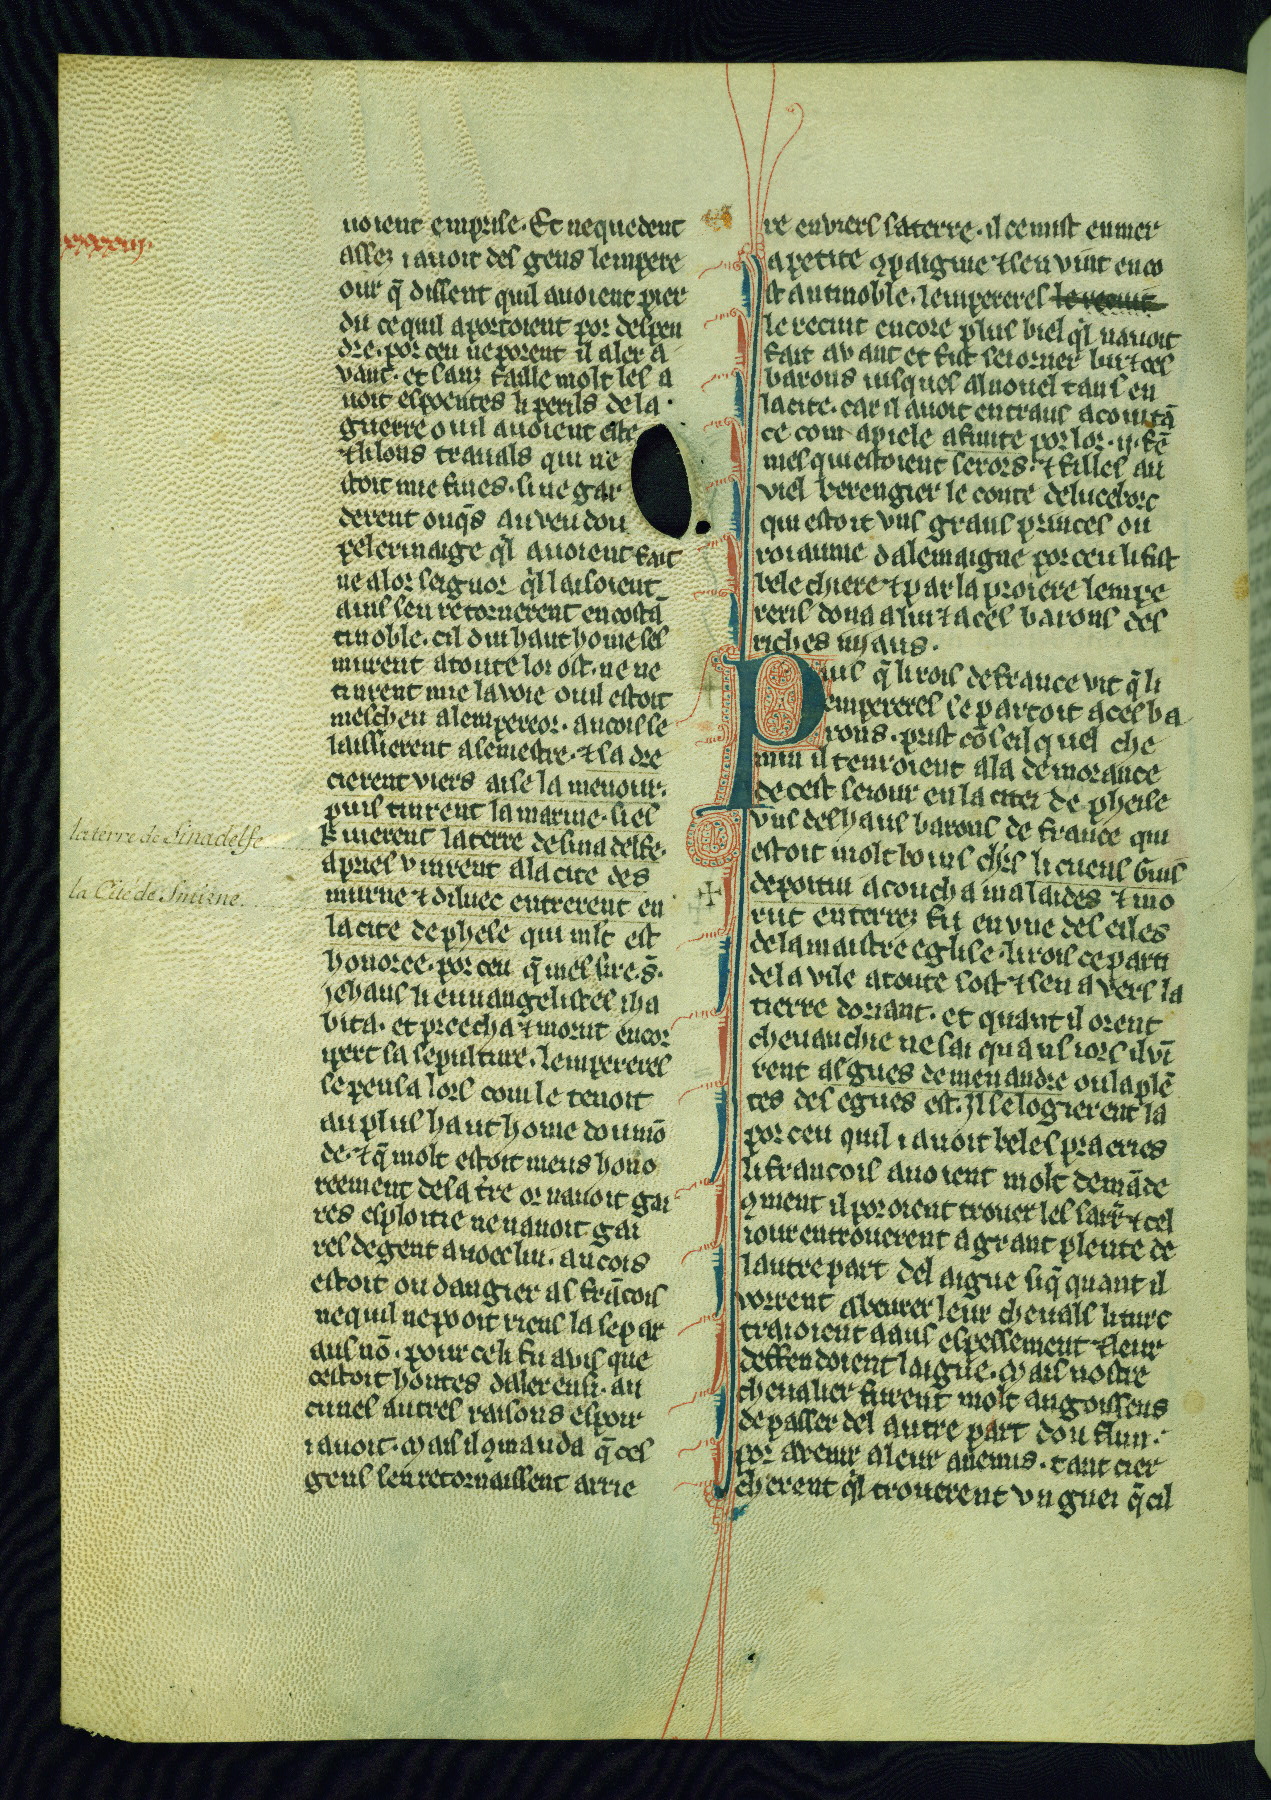 uoient emprise. Et nequedent
assez i auoit des gens lempere
our q̄ dissent quil auoient pier
du ce quil aportoient por despen
dre. por ceu ne porent il aler a
vant. et sanz faille molt les a
uoit espoentes li perils de la
guerre ou il auoient este
⁊ li lons trauals qui ne
stoit mie fines. si ne gar
derent onq̄s au veu dou
pelerinaige q̄l auoient fait
ne a lor seignor q̄l laisoient
ains sen retornerent en costā
tinoble. cil dui haut home ses
murent a toute lor ost. ne ne
tinrent mie la voie ou il estoit
mescheu a lempereor. ancois le
laissierent a semestre. ⁊ sadre
cierent viers aise la menour.
puis tinrent la marine. si es
kiuerent la terre de sinadelfe.
apries vinrent a la cite des
mirne ⁊ diluec entrerent en
la cite de phese qui mlt est
honoree. por ceu q̄ mes sire. s̄.
jehans li euuangelistes i ha
bita. et preecha ⁊ morut encor
ipert sa sepulture. lempereres
se pensa lors com le tenoit
au plus haut home dou mō
de. ⁊ q̄ molt estoit meus hono
reement de sa t̄re or nauoit gai
res esploitie ne nauoit gai
res de gent auoec lui. ancois
estoit ou dangier as frācois
ne quil ne pooit riens la se par
aus nō. pour ce li fu auis que
cestoit hontes daler ensi. au
cunes autres raisons espoir
i auoit. Mais il ꝯmanda q̄ ces
gens sen retornaissent arrie
re enviers sa terre. il ce mist en mer
a petite ꝯpaignie ⁊ sen vint en co
stantinoble. lempereres le recuit
le recuit encore plus biel q̄l nauoit
fait avant et fist seiorner lui ⁊ ces
barons iusques al nouel tans en
la cite. car il auoit entraus acointā
ce com apiele afinite por lor. ij. fē
mes qui estoient serors. ⁊ filles au
viel berengier le conte de luceborc
qui estoit vns grans princes ou
roiaume dalemaigne por ceu li fist
bele chiere ⁊ par la proiere lempe
reris dona a lui ⁊ a ces barons des
riches iuiaus.
Puis q̄ li rois de france vit q̄ li
empereres se partoit a ces ba
rons. prist cōseil quel che
min il tenroient a la demorance
de cest seiour en la citei de phese
vns des haus barons de france qui
estoit molt bouns ch̄rs li cuens Guis
de poitiu acoucha malaides ⁊ mo
rut enterrez fu en vne des eiles
de la maistre eglise. li rois ce parti
de la vile a toute sost ⁊ sen a vers la
tierre doriant. et quant il orent
cheuauchie ne sai quans iors il vī
rent as gues de menandre ou la plē
tes des egues est. Il se logierent la
por ceu quil i auoit beles praeries
li francois auoient molt demāde
ꝯment il poroient trouer les sarr̄ ⁊ cel
iour en trouerent a grant plente de
lautre part del aigue si q̄ quant il
vorrent abeurer leur cheuals li turc
traioient a aus espessement ⁊ leur
deffendoient laigue. Mais nostre
cheualier furent molt angoissens
de passer del autre part dou flun.
por avenir a leur anemis. tant cier
cherent q̄l trouerent vn guei q̄ cil
la terre de Sinadelfe
la Cite de Smirne.